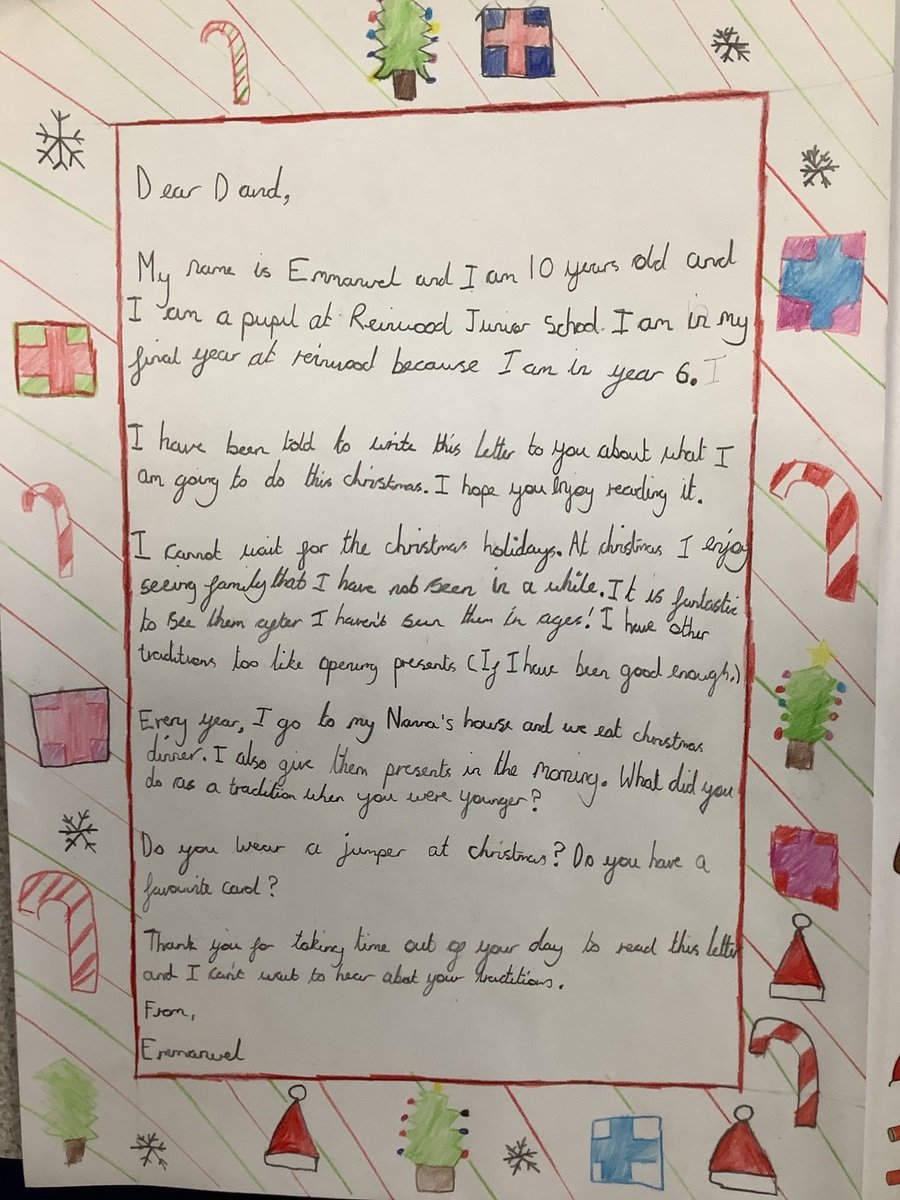 Dear Dand,
My name is Emmanuel and I am 10 years old and
I am a pupil at Reinwood Junior School. I am in my
final year at reinwood because I am in year 6. I
I have been told to write this letter to you about what I
am going to do this christmas. I hope you enjoy reading it.
I cannot wait for the christmas holidays. At christmas I enjoy
seeing family that I have not seen in a while. It is funtastic
to see them after I haven't seen them in ages! I have other
traditions too like opening presents (If I have been good enough.)
Every year, I go to my Nanna's house and we eat christmas
dinner. I also give them presents in the morning. What did you
do as a tradition when you were younger?
Do you wear a jumper at christmas? Do you have a
favourite carol?
Thank you for taking time out of your day to read this letter
and I can't wait to hear abot your traditions.
From,
Emmanuel